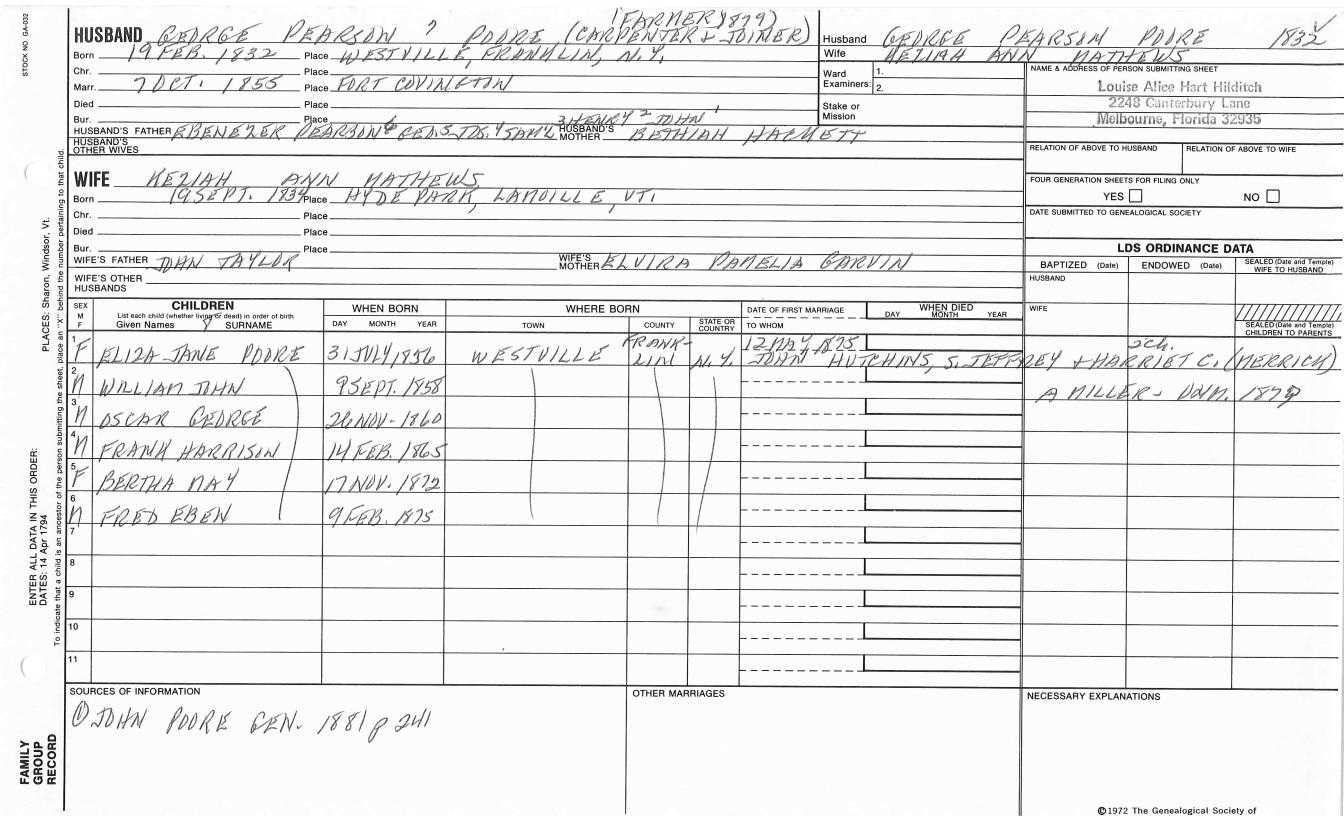 STOCK NO. GA-032
(FARMER 1879)
HUSBAND GEORGE PEARSON 7 POORE (CARPENTER & JOINER)
Born 19 FEB. 1832 Place WESTVILLE, FRANKLIN, N.Y.
Chr. Place
Marr. 7 OCT. 1855 Place FORT COVINGTON
Died Place
Bur. Place 3 HENRY 2 JOHN 1
HUSBAND'S FATHER EBENEZER PEARSON 6 GEO. 5 JDS. 4 SAM'L HUSBAND'S MOTHER BETHIAH HACKETT
HUSBAND'S OTHER WIVES
WIFE KEZIAH ANN MATHEWS
Born 19 SEPT. 1834 Place HYDE PARK, LAMOILLE, VT.
Chr. Place
Died Place
Bur. Place
WIFE'S FATHER JOHN TAYLOR WIFE'S MOTHER ELVIRA PAMELIA GARVIN
WIFE'S OTHER HUSBANDS
Husband GEORGE PEARSON POORE 1832
Wife KEZIAH ANN MATHEWS
Ward Examiners: 1.
2.
Stake or Mission
NAME & ADDRESS OF PERSON SUBMITTING SHEET
Louise Alice Hart Hilditch
2248 Canterbury Lane
Melbourne, Florida 32935
RELATION OF ABOVE TO HUSBAND RELATION OF ABOVE TO WIFE
FOUR GENERATION SHEETS FOR FILING ONLY
YES NO
DATE SUBMITTED TO GENEALOGICAL SOCIETY
LDS ORDINANCE DATA
BAPTIZED (Date) ENDOWED (Date) SEALED (Date and Temple) WIFE TO HUSBAND
HUSBAND
WIFE
SEALED (Date and Temple) CHILDREN TO PARENTS
SEX M F
CHILDREN
List each child (whether living or dead) in order of birth
Given Names SURNAME
WHEN BORN
DAY MONTH YEAR
WHERE BORN
TOWN COUNTY STATE OR COUNTRY
DATE OF FIRST MARRIAGE
TO WHOM
WHEN DIED
DAY MONTH YEAR
1 F ELIZA JANE POORE 31 JULY 1856 WESTVILLE FRANK-LIN N.Y. 12 MAY 1875 2CH.
JOHN HUTCHINS, S. JEFFREY & HARRIET C. (MERRICK)
2 M WILLIAM JOHN 9 SEPT. 1858 A MILLER - UNM. 1879
3 M OSCAR GEORGE 26 NOV. 1860
4 M FRANK HARRISON 14 FEB. 1865
5 F BERTHA MAY 17 NOV. 1872
6 M FRED EBEN 9 FEB. 1875
7
8
9
10
11
SOURCES OF INFORMATION
① JOHN POORE GEN. 1881 p 241
OTHER MARRIAGES
NECESSARY EXPLANATIONS
©1972 The Genealogical Society of
PLACES: Sharon, Windsor, Vt.
ENTER ALL DATA IN THIS ORDER:
DATES: 14 Apr 1794
To indicate that a child is an ancestor of the person submitting the sheet, place an "X" behind the number pertaining to that child.
FAMILY GROUP RECORD